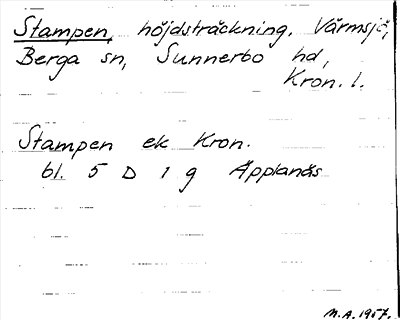 Stampen, höjdsträckning, Värmsjö,
Berga sn, Sunnerbo hd,
Kron. l.
Stampen ek Kron.
bl. 5 D 1 g Äpplanäs
M.A. 1957.